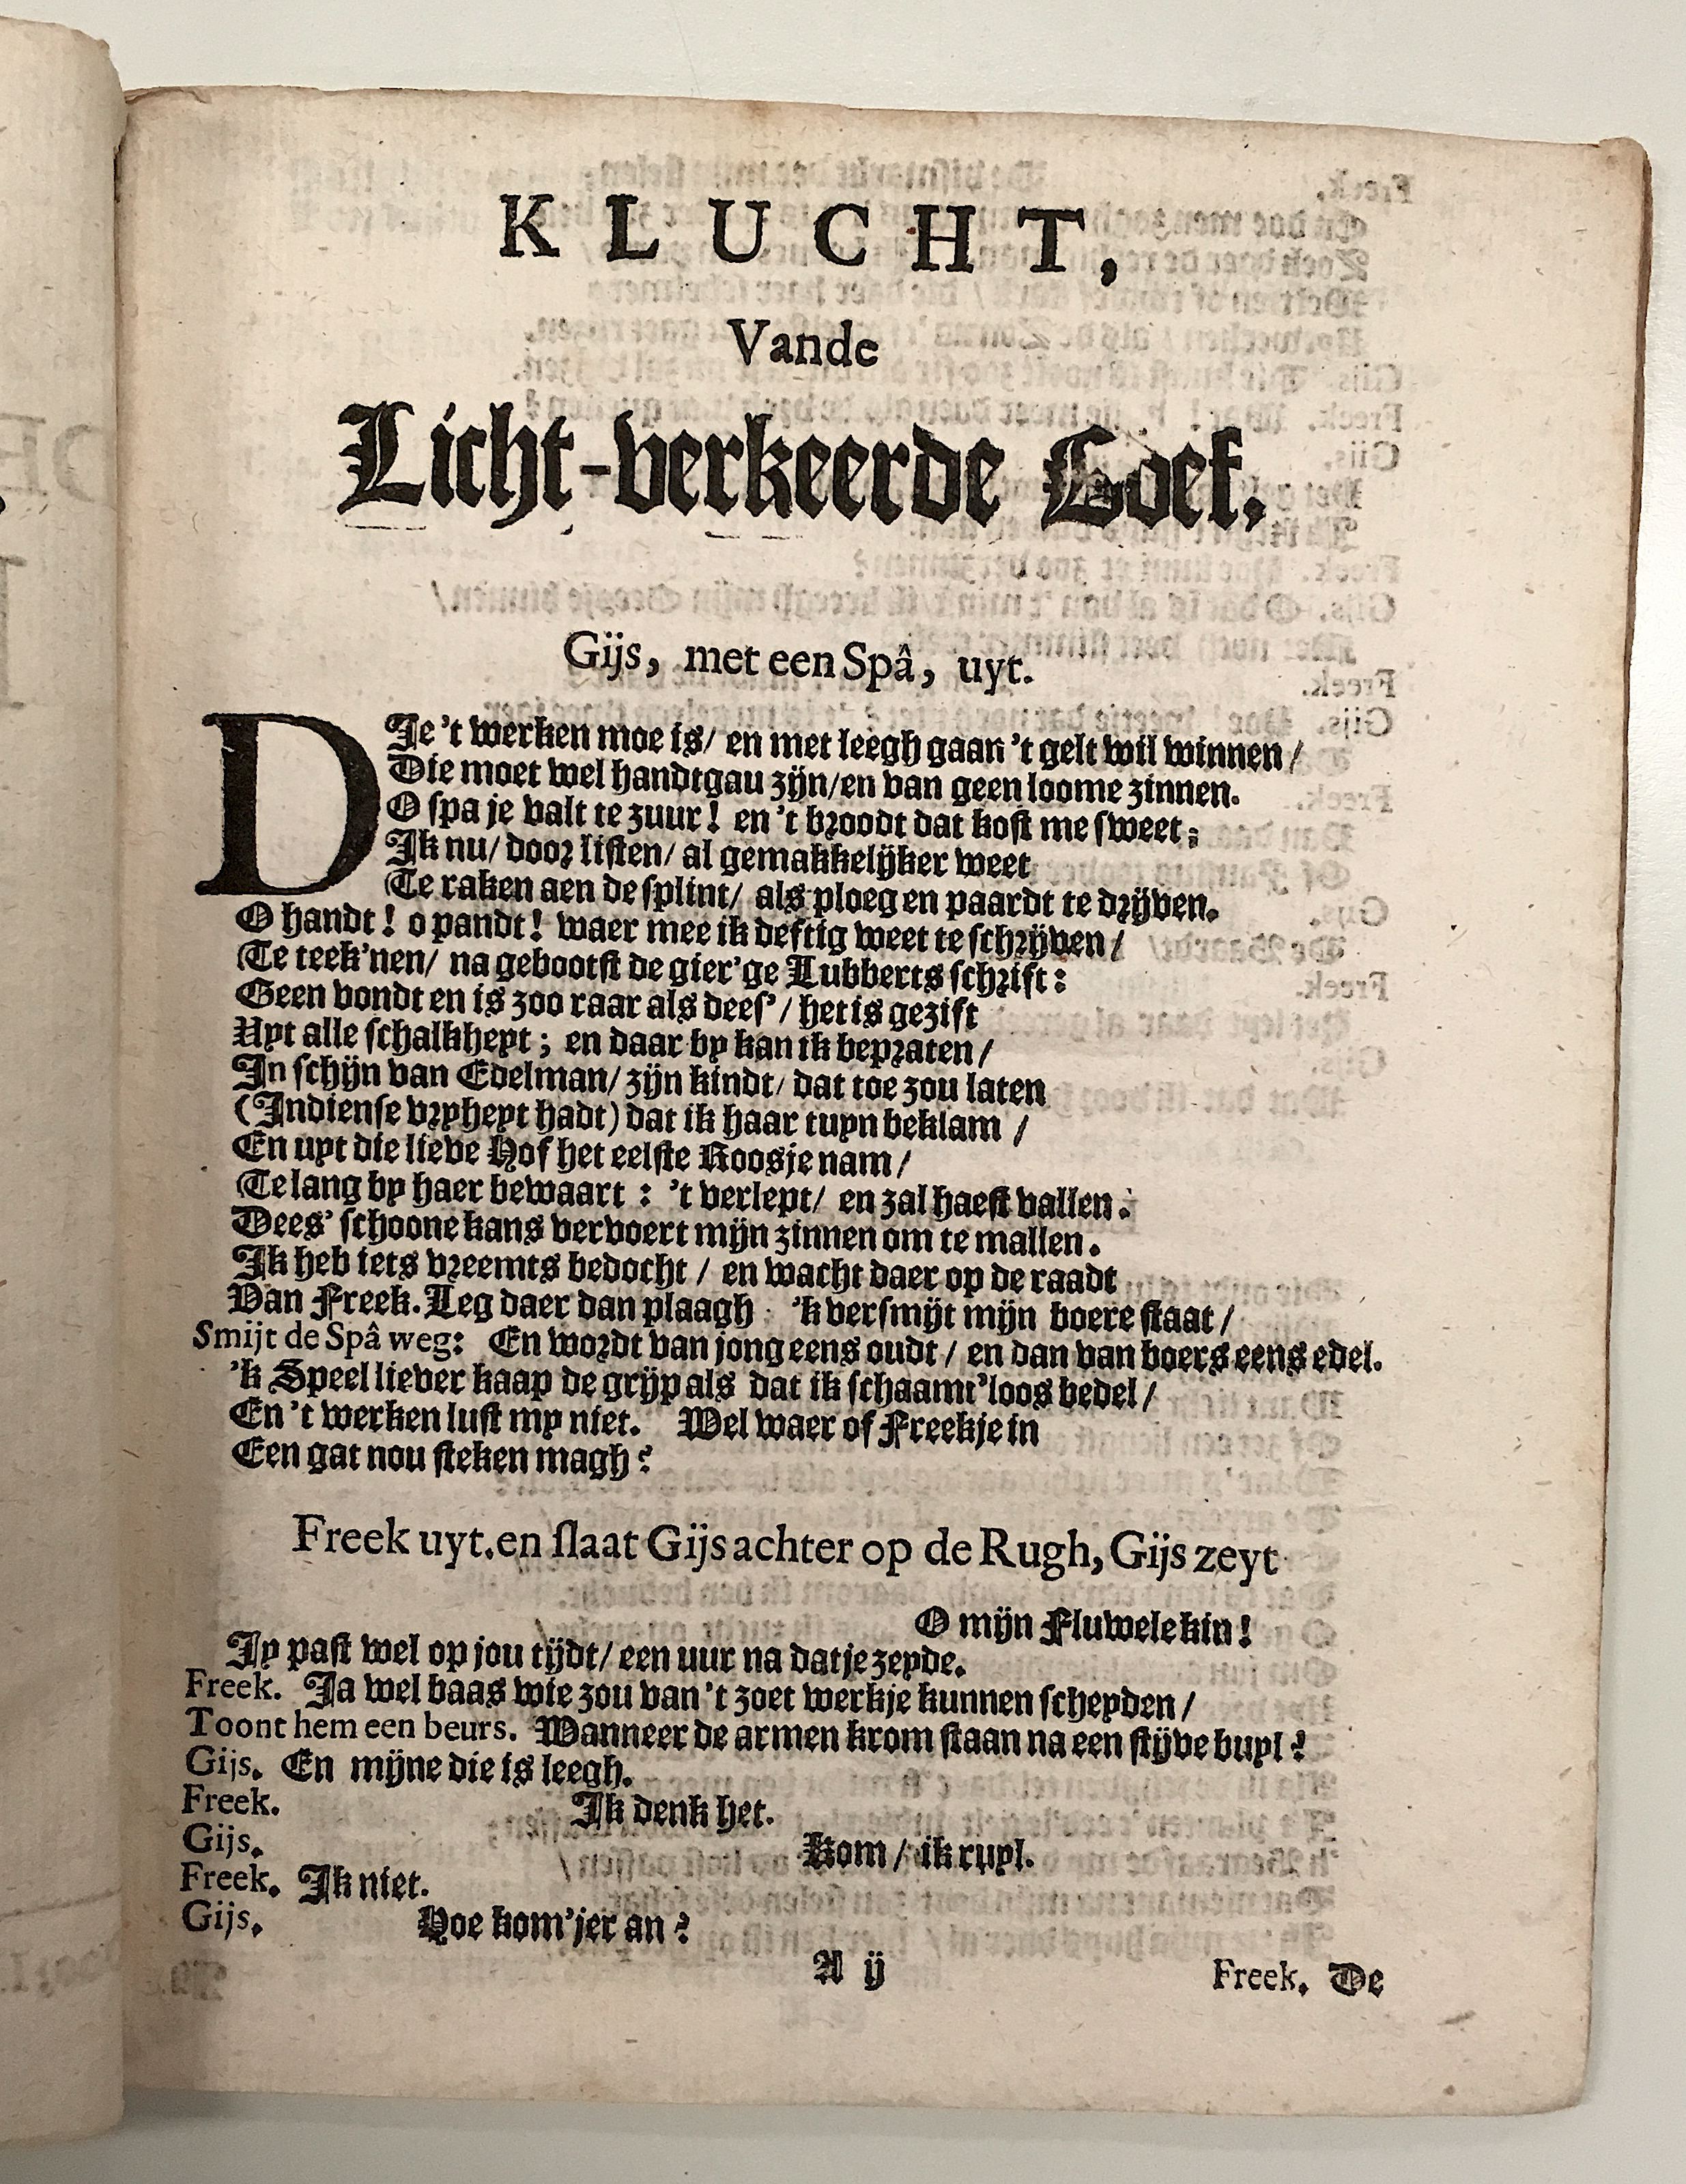 KLUCHT,
Vande
Licht-verkeerde Goef.
Gijs, met een Spâ, uyt.
DIe 't werken moe is/ en met leegh gaan 't gelt wil winnen /
Die moet wel handtgau zijn/en van geen loome zinnen.
O spa je valt te zuur! en 't broodt dat kost me sweet;
Ik nu/ door listen/ al gemakkelijker weet
Te raken aen de splint/ als ploeg en paardt te drijven.
O handt! o pandt! waer mee ik deftig weet te schrijven /
Te teek'nen/ na gebootst de gier'ge Lubberts schrift:
Geen vondt en is zoo raar als dees' / het is gezift
Uyt alle schalkheyt; en daar by kan ik bepraten /
In schijn van Edelman/ zijn kindt/ dat toe zou laten
(Indiense vryheyt hadt) dat ik haar tuyn beklam /
En uyt die lieve Hof het eelste Roosje nam /
Te lang by haer bewaart: 't verlept/ en zal haest vallen.
Dees' schoone kans vervoert mijn zinnen om te mallen.
Ik heb iets vreemts bedocht / en wacht daer op de raadt
Van Freek. Leg daer dan plaagh 'k versmijt mijn boere staat /
Smijt de Spâ weg: En wordt van jong eens oudt / en dan van boers eens edel.
'k Speel liever kaap de grijp als dat ik schaamt'loos bedel /
En 't werken lust my niet. Wel waer of Freekje in
Een gat nou steken magh?
Freek uyt.en slaat Gijs achter op de Rugh, Gijs zeyt
O mijn Fluwele kin!
Jy past wel op jou tijdt/ een uur na datje zeyde.
Freek. Ja wel baas wie zou van 't zoet werkje kunnen scheyden /
Toont hem een beurs. Wanneer de armen krom staan na een stijve buyl?
Gijs. En mijne die is leegh.
Freek. Ik denk het.
Gijs. Kom / ik ruyl.
Freek. Ik niet.
Gijs. Hoe kom'jer an?
A ij
Freek. De